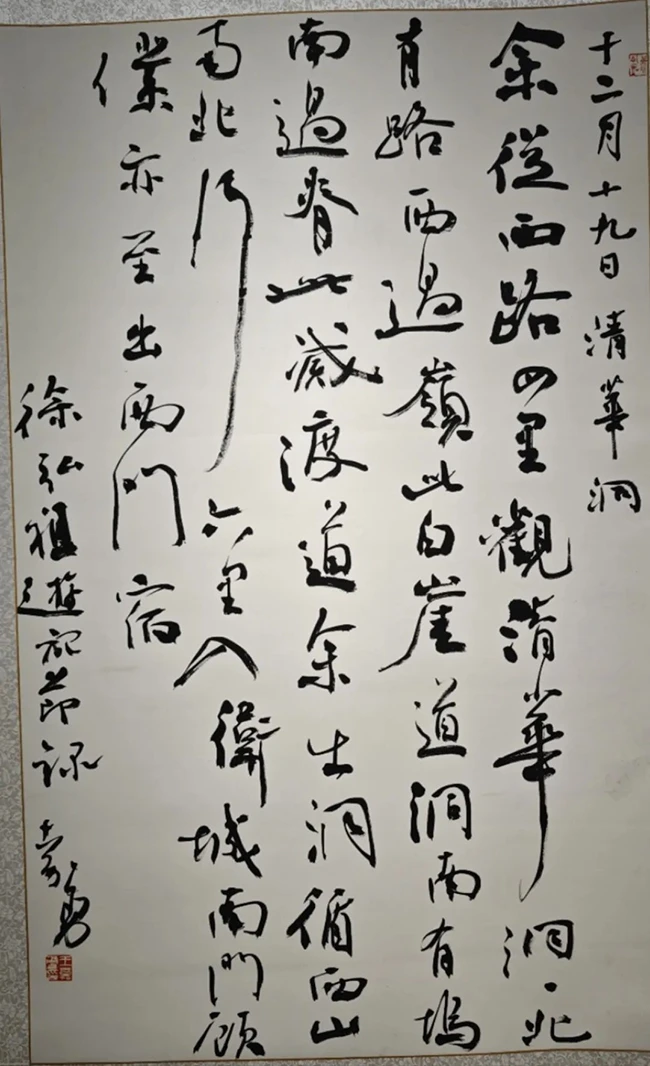 十二月十九日 清華洞
余從西路四里觀清華洞、北
有路西過嶺此白崖道洞南有塢
南過脊此減渡道余出洞循西山
南北行六里入衛城南門顧
僕亦至出西門宿
徐弘祖遊記節錄